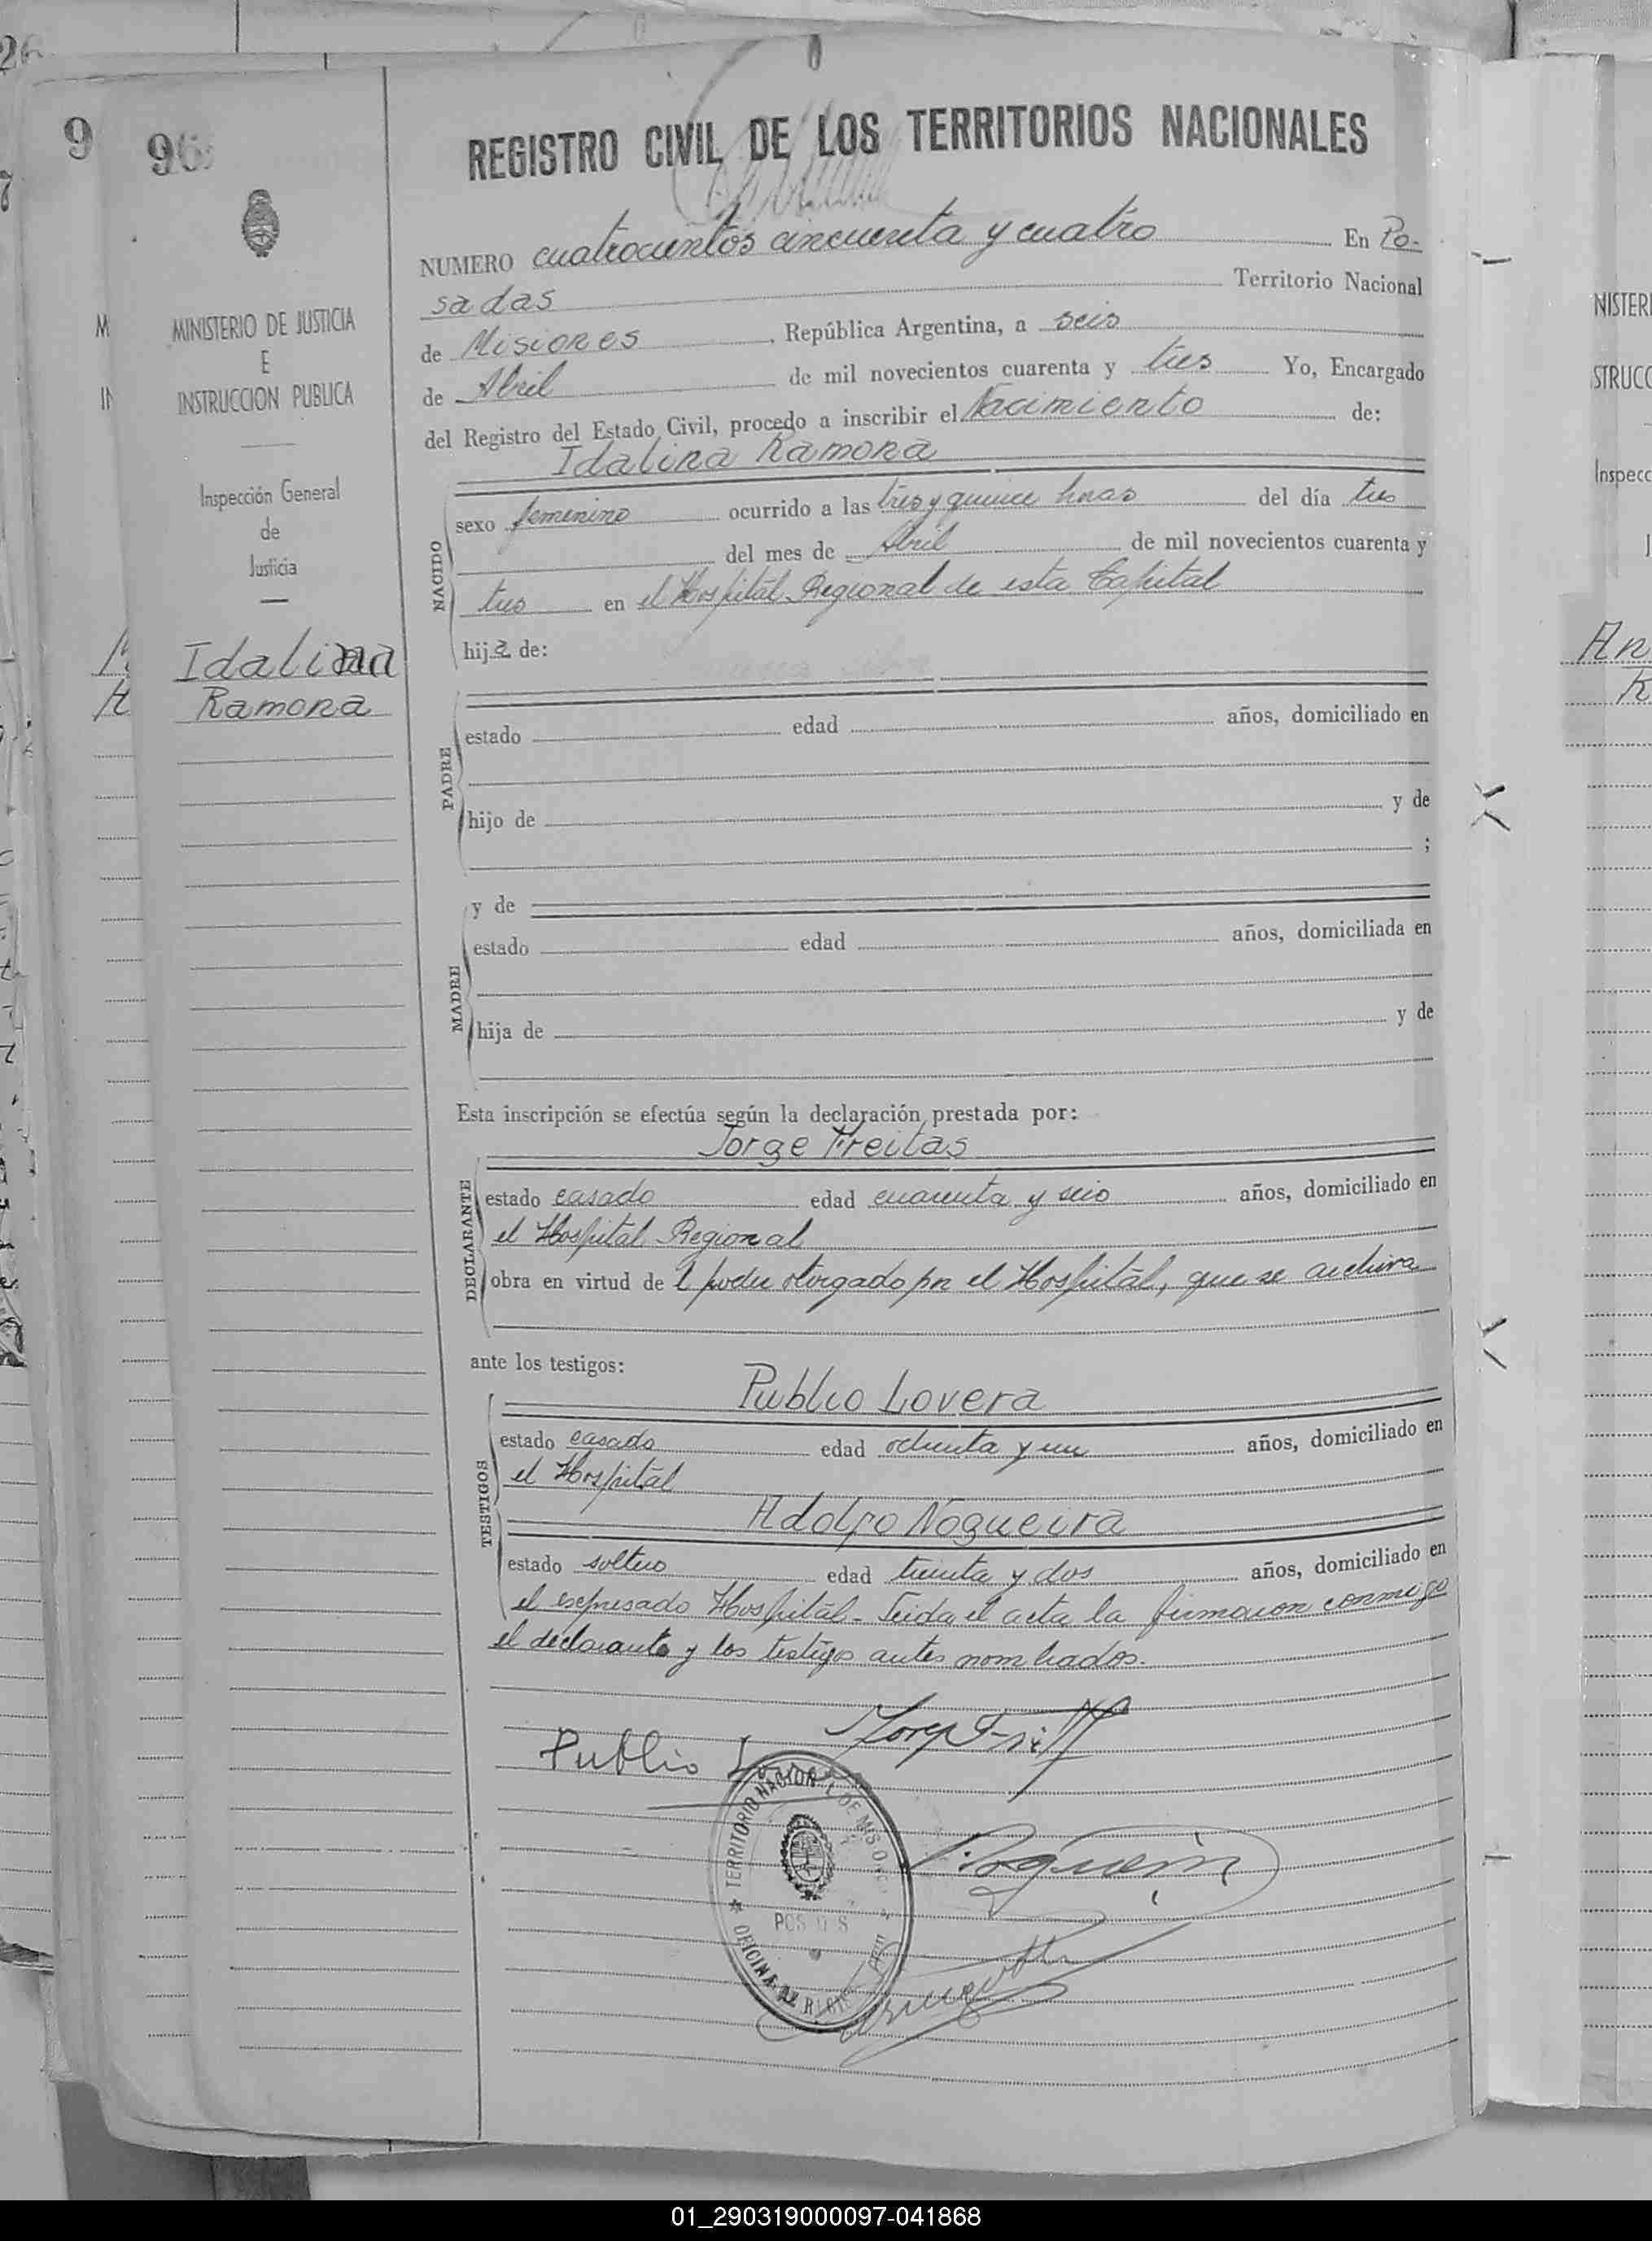 9
96
REGISTRO CIVIL DE LOS TERRITORIOS NACIONALES
NUMERO cuatrocientos cincuenta y cuatro En Po-
sadas Territorio Nacional
de Misiones, República Argentina, a seis
de Abril de mil novecientos cuarenta y tres Yo, Encargado
del Registro del Estado Civil, procedo a inscribir el Nacimiento de:
Idalina Ramona
MINISTERIO DE JUSTICIA
E
INSTRUCCION PUBLICA
Inspección General
de
Justicia
Idalina
Ramona
NACIDO
sexo femenino ocurrido a las tres y quince horas del día tres
del mes de Abril de mil novecientos cuarenta y
tres en el Hospital Regional de esta Capital
hija de:
PADRE
estado edad años, domiciliado en
hijo de y de
;
MADRE
y de
estado edad años, domiciliada en
hija de y de
Esta inscripción se efectúa según la declaración prestada por:
Jorge Freitas
DECLARANTE
estado casado edad cuarenta y seis años, domiciliado en
el Hospital Regional
obra en virtud de l poder otorgado por el Hospital, que se archiva
ante los testigos:
Publio Lovera
TESTIGOS
estado casado edad ochenta y un años, domiciliado en
el Hospital
Adolfo Nogueira
estado soltero edad treinta y dos años, domiciliado en
el expresado Hospital - Leida el acta, la firmaron conmigo
el declarante y los testigos antes nombrados.
Publio
TERRITORIO NACIONAL DE MISIONES
OFICINA
NISTERI
STRUCC
Inspecc
An
R
01_290319000097-041868